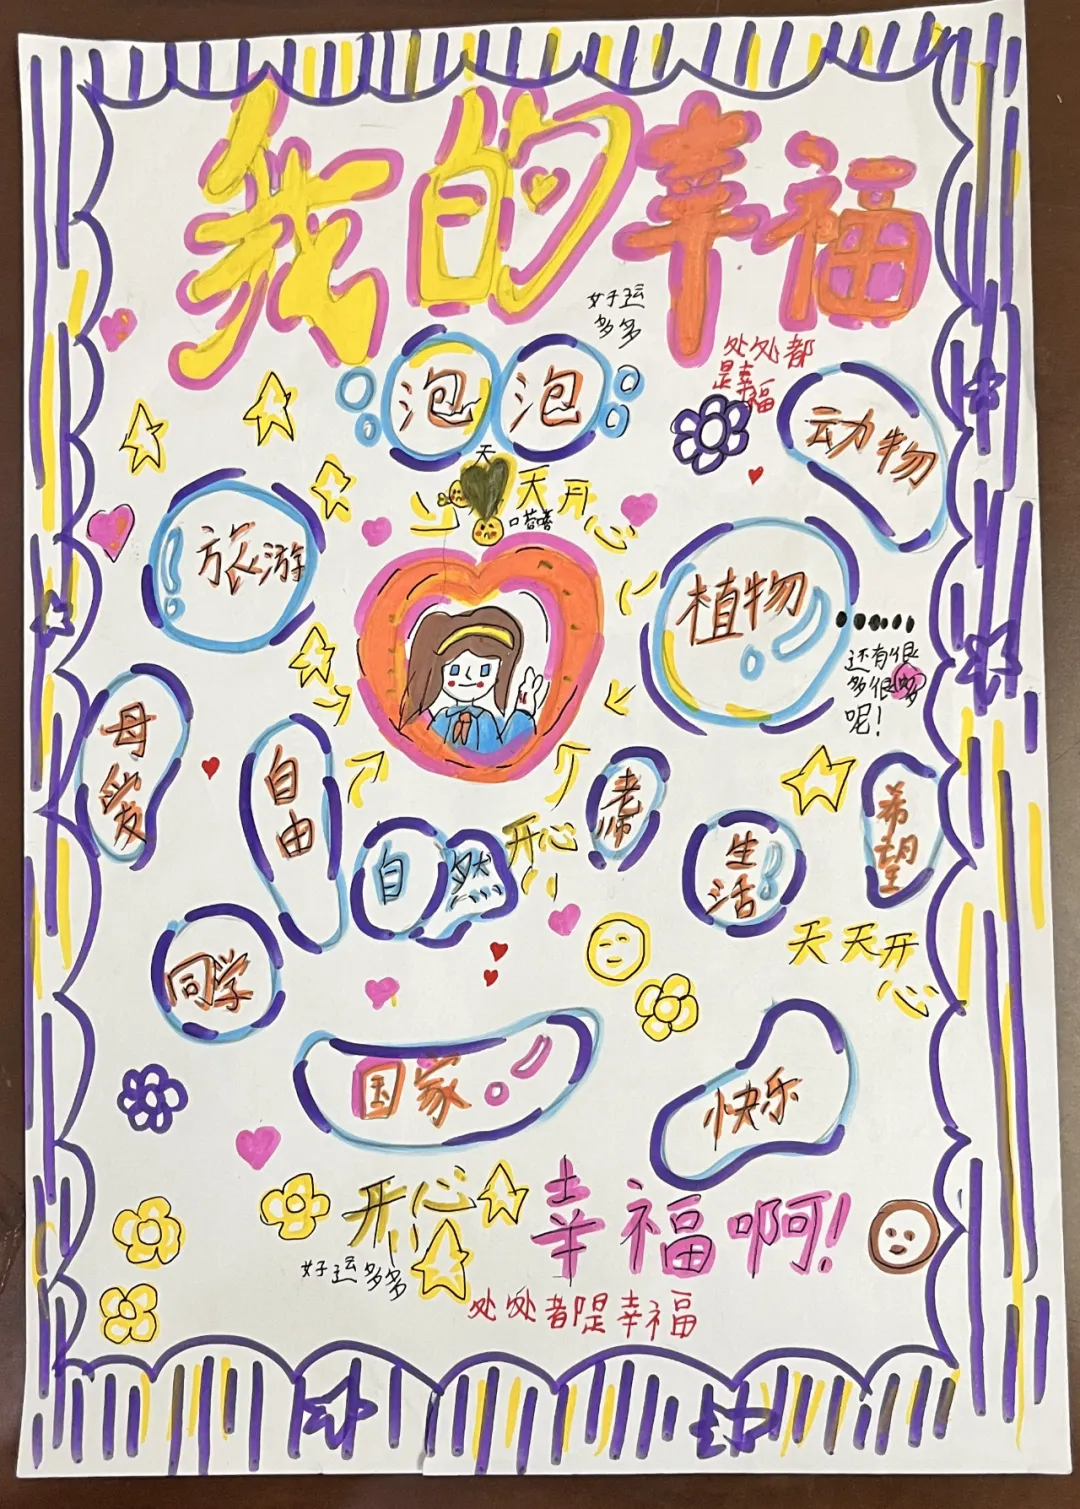 我的幸福
好运
多多
处处都
是幸
福
泡 泡
动物
天
天开心
旅游
植物
还有很
多很多
呢!
母爱
自由
老师
希望
自然
开心
生活
天天开
心
同学
国家
快乐
开心
幸福啊!
好运多多
处处都是幸福